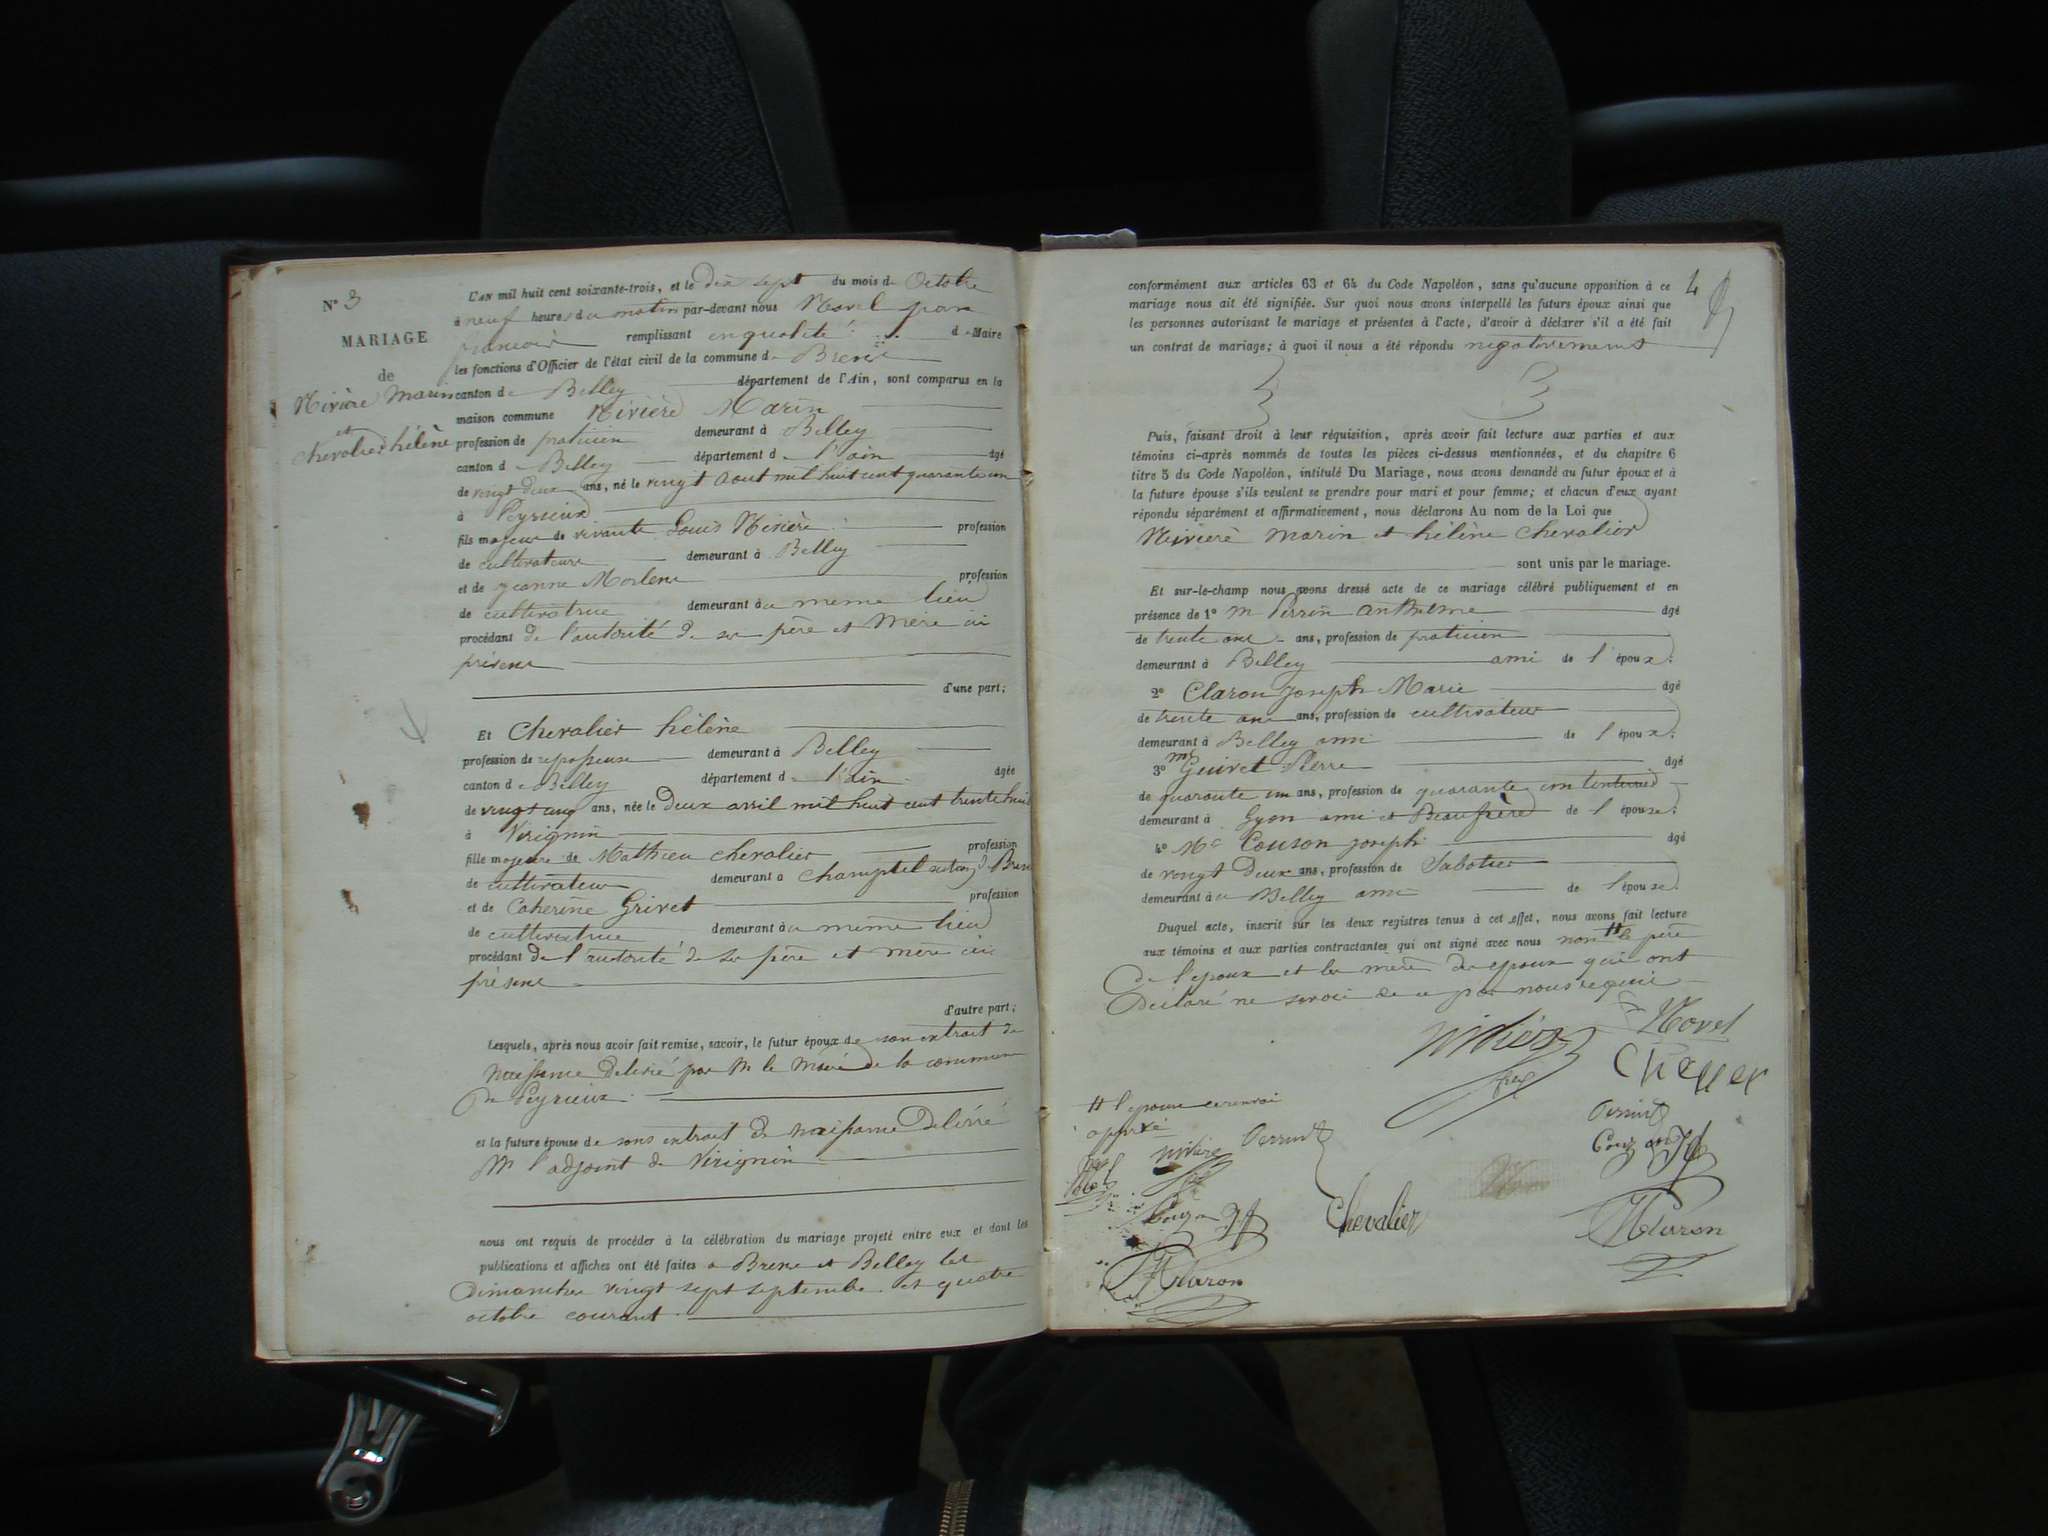 N° 3
MARIAGE
de
Nivière Marin
et
Chevalier hélène
L'AN mil huit cent soixante-trois, et le dix sept du mois de Octobre
à neuf heures du matin par-devant nous Novel jean
françois remplissant en qualité de Maire
les fonctions d'Officier de l'état civil de la commune de Brens
canton de Belley département de l'Ain, sont comparus en la
maison commune Nivière Marin
profession de praticien demeurant à Belley
canton de Belley département de l'ain âgé
de vingt deux ans, né le vingt aout mil huit cent quarante un
à Peyrieux
fils majeur de vivants Louis Nivière profession
de cultivateur demeurant à Belley
et de jeanne profession
de cultivatrice demeurant au même lieu
procédant de l'autorité de ses père et mère ici
présens
d'une part;
Et Chevalier hélène
profession de repasseuse demeurant à Belley
canton de Belley département de l'ain âgée
de vingt cinq ans, née le deux avril mil huit cent trente huit
à Virignin
fille majeure de Mathieu chevalier profession
de cultivateur demeurant à Champtel Brens
et de Caherine Grivet profession
de cultivatrice demeurant au même lieu
procédant de l'autorité de ses père et mère ici
présens
d'autre part;
Lesquels, après nous avoir fait remise, savoir, le futur époux de son extrait de
naissance délivré par M le Maire de la commune
de Peyrieux
et la future épouse de sons extrait de naissance Delivré
M l'adjoint de Virignin
nous ont requis de procéder à la célébration du mariage projeté entre eux et dont les
publications et affiches ont été faites a Brens et Belley les
Dimanches vingt sept septembre et quatre
octobre courant
4
conformément aux articles 63 et 64 du Code Napoléon, sans qu'aucune opposition à ce
mariage nous ait été signifiée. Sur quoi nous avons interpellé les futurs époux ainsi que
les personnes autorisant le mariage et présentes à l'acte, d'avoir à déclarer s'il a été fait
un contrat de mariage; à quoi il nous a été répondu negativement
Puis, faisant droit à leur réquisition, après avoir fait lecture aux parties et aux
témoins ci-après nommés de toutes les pièces ci-dessus mentionnées, et du chapitre 6
titre 5 du Code Napoléon, intitulé Du Mariage, nous avons demandé au futur époux et à
la future épouse s'ils veulent se prendre pour mari et pour femme; et chacun d'eux ayant
répondu séparément et affirmativement, nous déclarons Au nom de la Loi que
Nivière Marin et hélène Chevalier
sont unis par le mariage.
Et sur-le-champ nous avons dressé acte de ce mariage célébré publiquement et en
présence de 1° M Perrin anthelme âgé
de trente ans ans, profession de praticien
demeurant à Belley ami de l'époux.
2° Claron joseph Marie âgé
de trente ans ans, profession de cultivateur
demeurant à Belley ami de l'époux.
3° Mr Guivet Pierre âgé
de quarante un ans, profession de quarante un
demeurant à Lyon ami et Beaufrère de l'épouse.
4° Mr Couson joseph âgé
de vingt Deux ans, profession de Sabotier
demeurant à Belley ami de l'épouse.
Duquel acte, inscrit sur les deux registres tenus à cet effet, nous avons fait lecture
aux témoins et aux parties contractantes qui ont signé avec nous non # le père
De l'epoux et les mères des epoux qui ont
Déclaré ne savoir de ce par nous requis
Nivière
Novel
Perrin
Couzon
# l'epouse ce renvoi
approuvé
Nivière
Perrin
Couzon
Chevalier
Claron
Claron